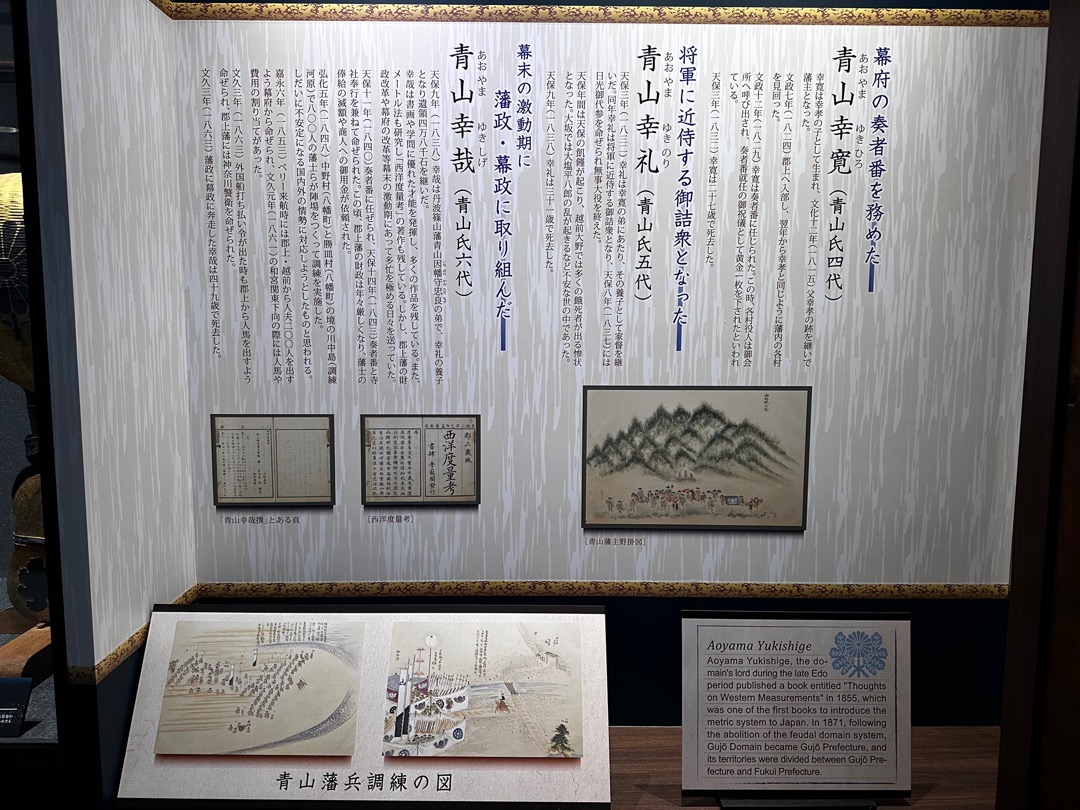 幕府の奏者番を務めた
青山幸寛（青山氏四代）
あおやま ゆきひろ
幸寛は幸孝の子として生まれ、文化十二年（一八一五）父幸孝の跡を継いで
藩主となった。
文政七年（一八二四）郡上へ入部し、翌年から幸孝と同じように藩内の各村
を見回った。
文政十二年（一八二九）幸寛は奏者番に任じられた。この時、各村役人は御会
所へ呼び出され、奏者番就任の御祝儀として黄金一枚を下されたといわれ
ている。
天保三年（一八三二）幸寛は二十七歳で死去した。
将軍に近侍する御詰衆となった
青山幸礼（青山氏五代）
あおやま ゆきのり
天保三年（一八三二）幸礼は幸寛の弟にあたり、その養子として家督を継
いだ。同年幸礼は将軍に近侍する御詰衆となり、天保八年（一八三七）には
日光御代参を命ぜられ無事大役を終えた。
天保年間は天保の飢饉が起こり、越前大野では多くの餓死者が出る惨状
となった。大坂では大塩平八郎の乱が起きるなど不安な世の中であった。
天保九年（一八三八）幸礼は三十一歳で死去した。
幕末の激動期に
藩政・幕政に取り組んだ
青山幸哉（青山氏六代）
あおやま ゆきしげ
天保九年（一八三八）幸哉は丹波篠山藩青山因幡守忠良の弟で、幸礼の養子
となり遺領四万八千石を継いだ。
幸哉は書画や学問に優れた才能を発揮し、多くの作品を残している。また、
メートル法も研究し「西洋度量考」の著作も残している。しかし、郡上藩の財
政改革や幕府の改革等幕末の激動期にあって多忙を極める日々を送っていた。
天保十一年（一八四〇）奏者番に任ぜられ、天保十四年（一八四三）奏者番と寺
社奉行を兼ねて命ぜられた。この頃、郡上藩の財政は年々厳しくなり、藩士の
俸給の減額や商人への御用金が依頼された。
弘化五年（一八四八）中野村（八幡町）と勝皿村（八幡町）の境の川中島（調練
河原）で八〇〇人の藩士らが陣場をつくって調練を実施した。
しだいに不安定になる国内外の情勢に対応しようとしたものと思われる。
嘉永六年（一八五三）ペリー来航時には郡上・越前から人夫二〇〇人を出す
よう幕府から命ぜられ、文久元年（一八六一）の和宮関東下向の際には人馬や
費用の割り当てがあった。
文久三年（一八六三）外国船打ち払い令が出た時も郡上から人馬を出すよう
命ぜられ、郡上藩には神奈川警衛を命ぜられた。
文久三年（一八六三）藩政に幕政に奔走した幸哉は四十九歳で死去した。
郡上蔵版
西洋度量考
［「青山幸哉撰」とある頁］
［西洋度量考］
［青山藩主野掛図］
青山藩兵調練の図
Aoyama Yukishige
Aoyama Yukishige, the do-
main's lord during the late Edo
period published a book entitled "Thoughts
on Western Measurements" in 1855, which
was one of the first books to introduce the
metric system to Japan. In 1871, following
the abolition of the feudal domain system,
Gujō Domain became Gujō Prefecture, and
its territories were divided between Gujō Pre-
fecture and Fukui Prefecture.